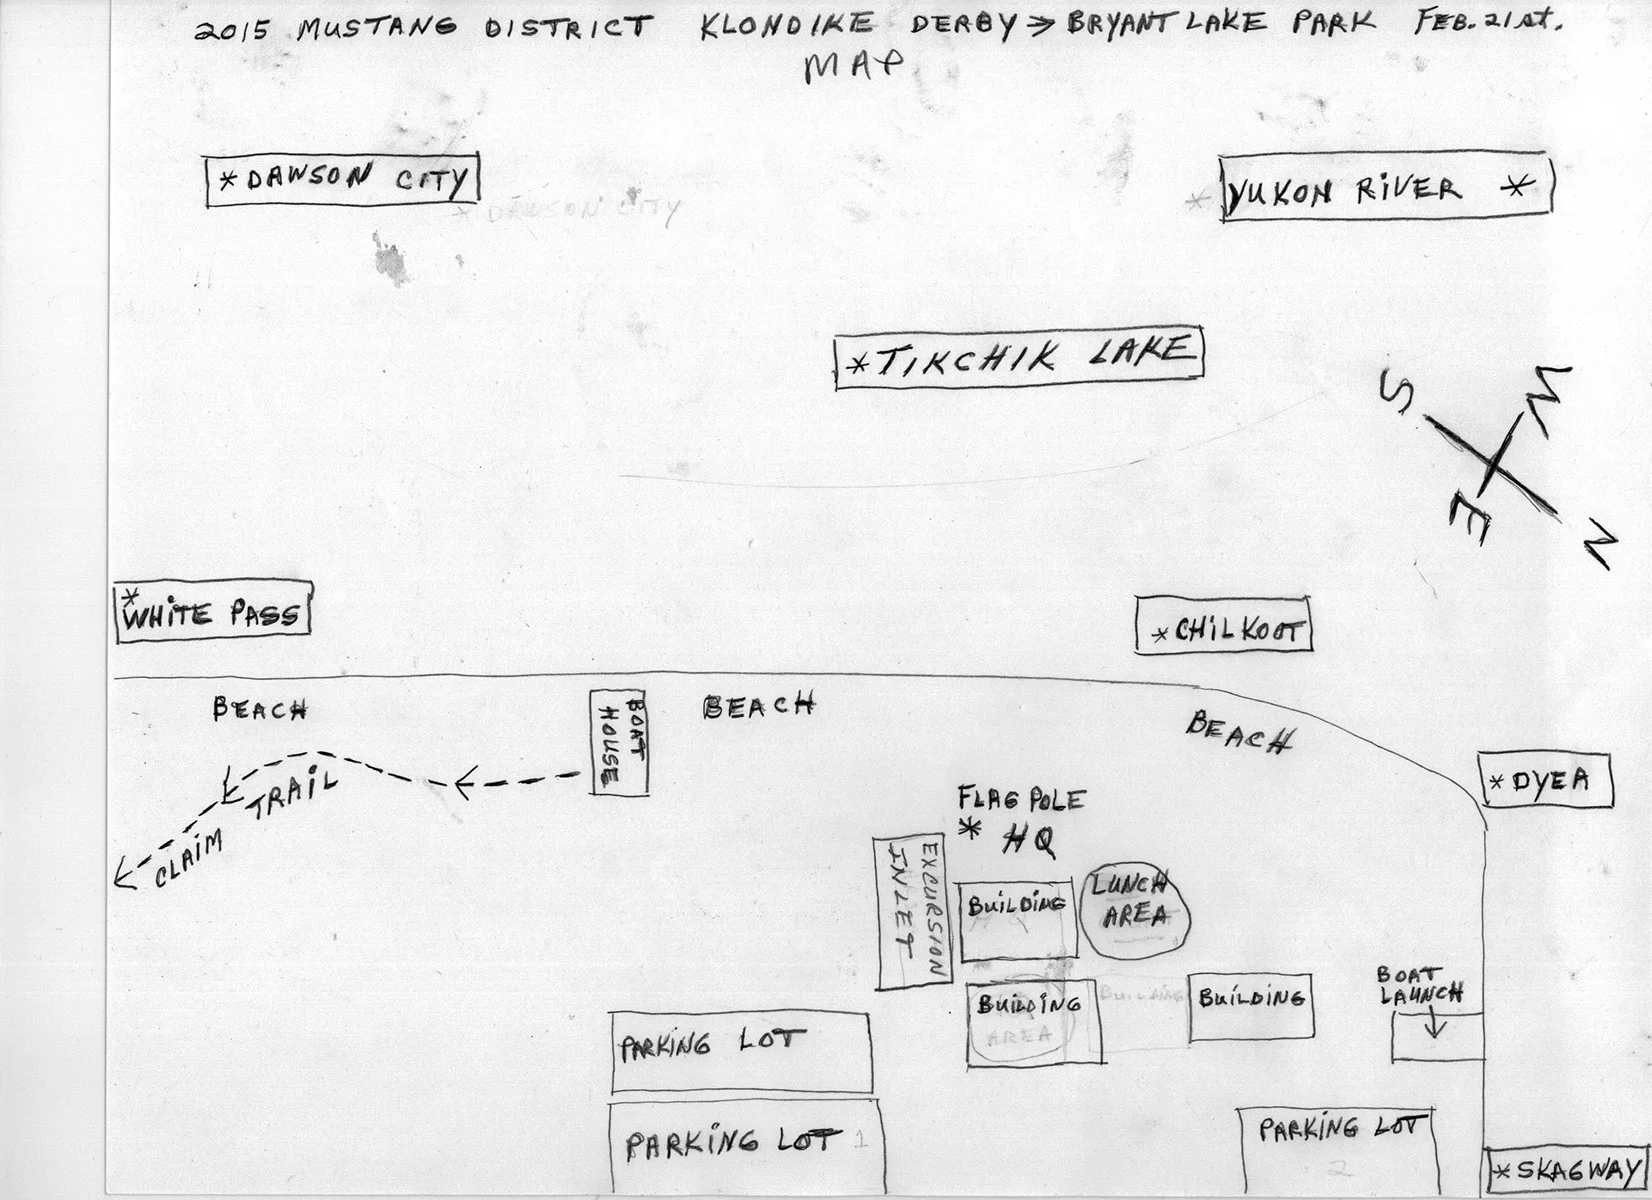 2015 MUSTANG DISTRICT KLONDIKE DERBY → BRYANT LAKE PARK FEB. 21st.
MAP
*DAWSON CITY
* DAWSON CITY
* YUKON RIVER *
*TIKCHIK LAKE
S
W
E
N
*
WHITE PASS
*CHILKOOT
BEACH
BOAT
HOUSE
BEACH
BEACH
*DYEA
CLAIM TRAIL
FLAG POLE
* HQ
EXCURSION
INLET
BUILDING
LUNCH
AREA
BUILDING
AREA
BUILDING
BUILDING
BOAT
LAUNCH
PARKING LOT
PARKING LOT 1
PARKING LOT
2
*SKAGWAY